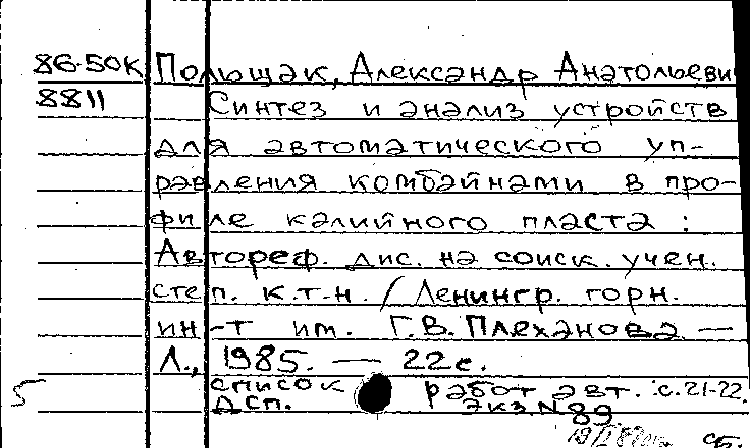 86-50К Польщак, Александр Анатольеви
8811 Синтез и анализ устройств
для автоматического уп-
равления комбайнами в про-
филе калийного пласта :
Автореф. дис. на соиск. учен.
степ. к.т.н. / Ленингр. горн.
ин-т им. Г.В. Плеханова —
Л., 1985. — 22 с.
5 список работ авт. с. 21-22.
ДСП. Экз N 89